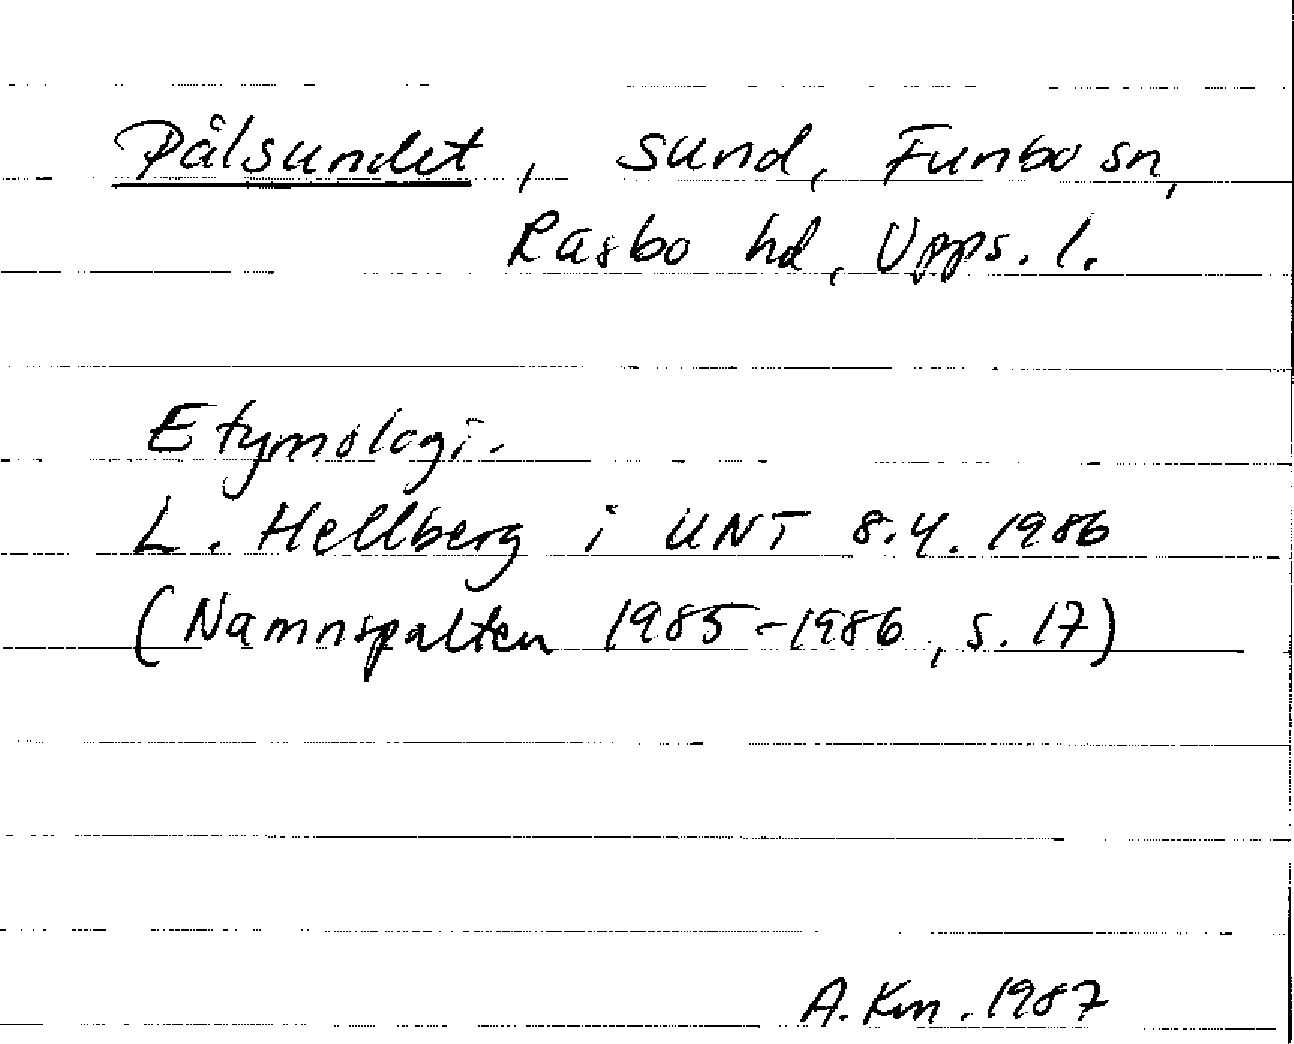 Pålsundet, sund, Funbo sn,
Rasbo hd, Upps. l.
Etymologi.
L. Hellberg i UNT 8.4. 1986
(Namnspalten 1985-1986, s. 17)
A. Km. 1987